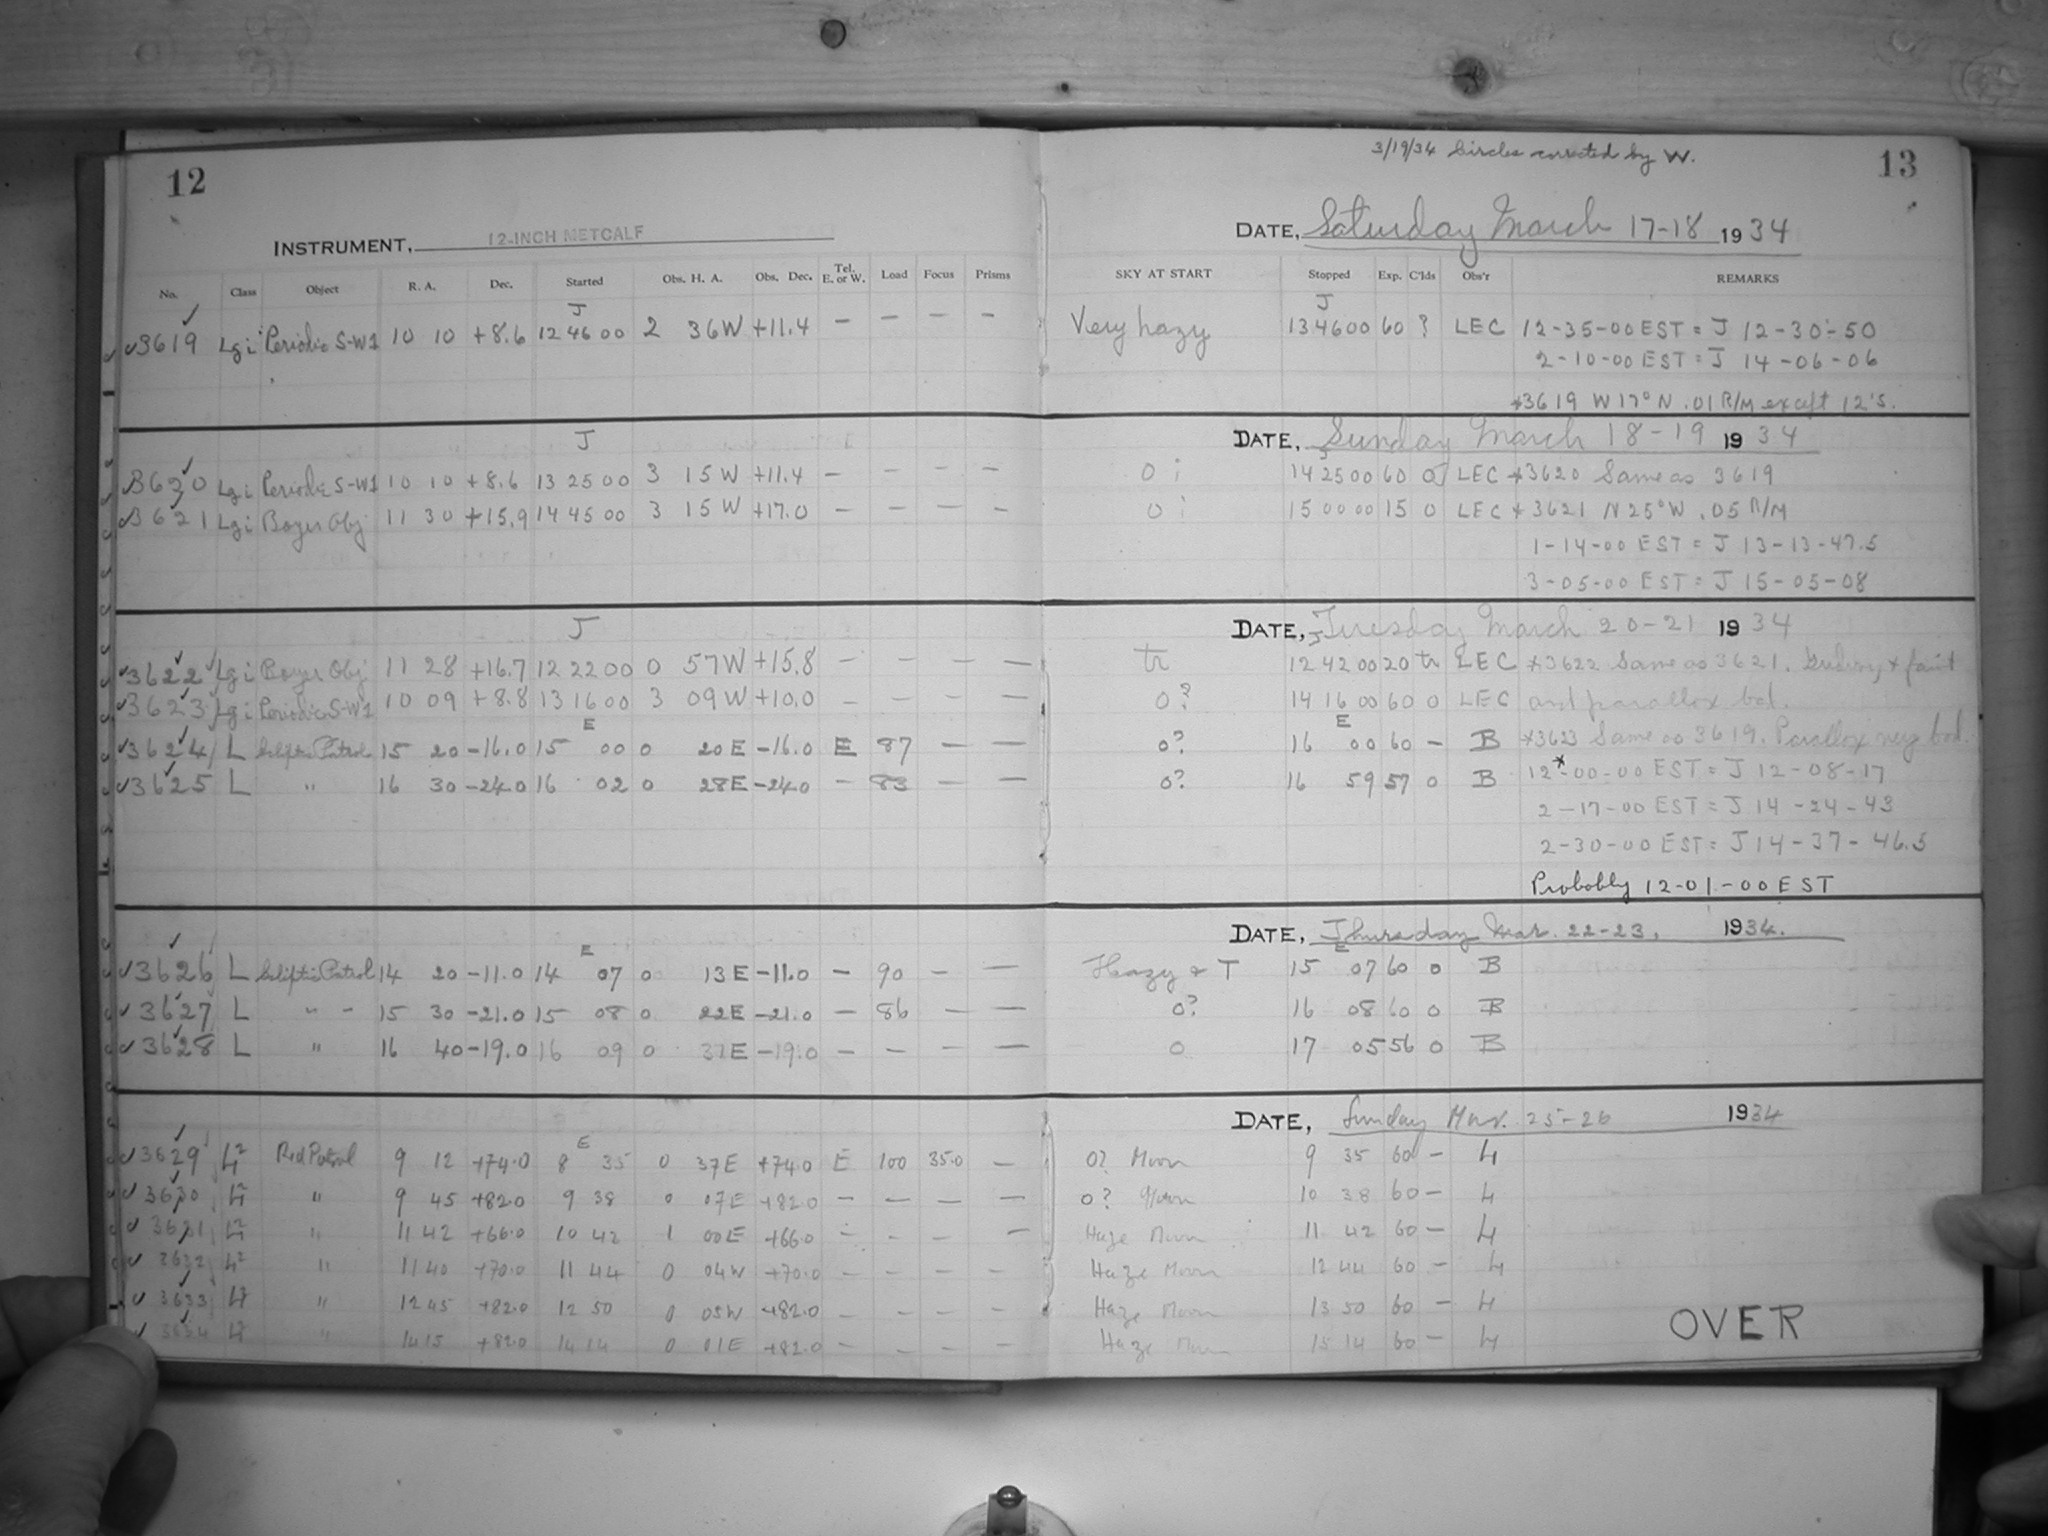 12
INSTRUMENT, 12-INCH METCALF
No. Class Object R. A. Dec. Started Obs. H. A. Obs. Dec. Tel. E. or W. Load Focus Prisms
J
3619 Lgi Periodic S-W1 10 10 +8.6 12 46 00 2 36W +11.4 — — — —
J
3620 Lgi Periodic S-W1 10 10 +8.6 13 25 00 3 15W +11.4 — — — —
3621 Lgi Boyer Obj 11 30 +15.9 14 45 00 3 15W +17.0 — — — —
J
3622 Lgi Boyer Obj 11 28 +16.7 12 22 00 0 57W +15.8 — — — —
3623 Lgi Periodic S-W1 10 09 +8.8 13 16 00 3 09W +10.0 — — — —
E
3624 L Ecliptic Patrol 15 20 -16.0 15 00 0 20E -16.0 E 87 — —
3625 L " 16 30 -24.0 16 02 0 28E -24.0 — 83 — —
E
3626 L Ecliptic Patrol 14 20 -11.0 14 07 0 13E -11.0 — 90 — —
3627 L " - 15 30 -21.0 15 08 0 22E -21.0 — 86 — —
3628 L " 16 40 -19.0 16 09 0 31E -19.0 — — — —
E
3629 Red Patrol 9 12 +74.0 8 35 0 37E +74.0 E 100 35.0 —
3630 " 9 45 +82.0 9 38 0 07E +82.0 — — — —
3631 " 11 42 +66.0 10 42 1 00E +66.0 — — — —
3632 " 11 40 +70.0 11 44 0 04W +70.0 — — — —
3633 " 12 45 +82.0 12 50 0 05W +82.0 — — — —
3634 " 14 15 +82.0 14 14 0 01E +82.0 — — — —
3/19/34 Circles corrected by W.
13
DATE, Saturday March 17-18 1934
SKY AT START Stopped Exp. C'lds Obs'r REMARKS
J
Very hazy 13 46 00 60 ? LEC 12-35-00 EST = J 12-30-50
2-10-00 EST = J 14-06-06
*3619 W 17° N .01 R/M except 12's.
DATE, Sunday March 18-19 1934
J
0 i 14 25 00 60 0 LEC *3620 Same as 3619
0 i 15 00 00 15 0 LEC *3621 N 25° W .05 R/M
1-14-00 EST = J 13-13-47.5
3-05-00 EST = J 15-05-08
DATE, Tuesday March 20-21 1934
J
tr 12 42 00 20 tr LEC *3622 Same as 3621. Guiding * faint
0? 14 16 00 60 0 LEC and parallax bad.
E
0? 16 00 60 — B *3623 Same as 3619. Parallax very bad.
0? 16 59 57 0 B 12*-00-00 EST = J 12-08-17
2-17-00 EST = J 14-24-43
2-30-00 EST = J 14-37-46.5
Probably 12-01-00 EST
DATE, Thursday Mar. 22-23, 1934.
E
Hazy & T 15 07 60 0 B
0? 16 08 60 0 B
0 17 05 56 0 B
DATE, Sunday Mar. 25-26 1934
0? Moon 9 35 60 —
0? Moon 10 38 60 —
Haze Moon 11 42 60 —
Haze Moon 12 44 60 —
Haze Moon 13 50 60 —
Haze Moon 15 14 60 —
OVER